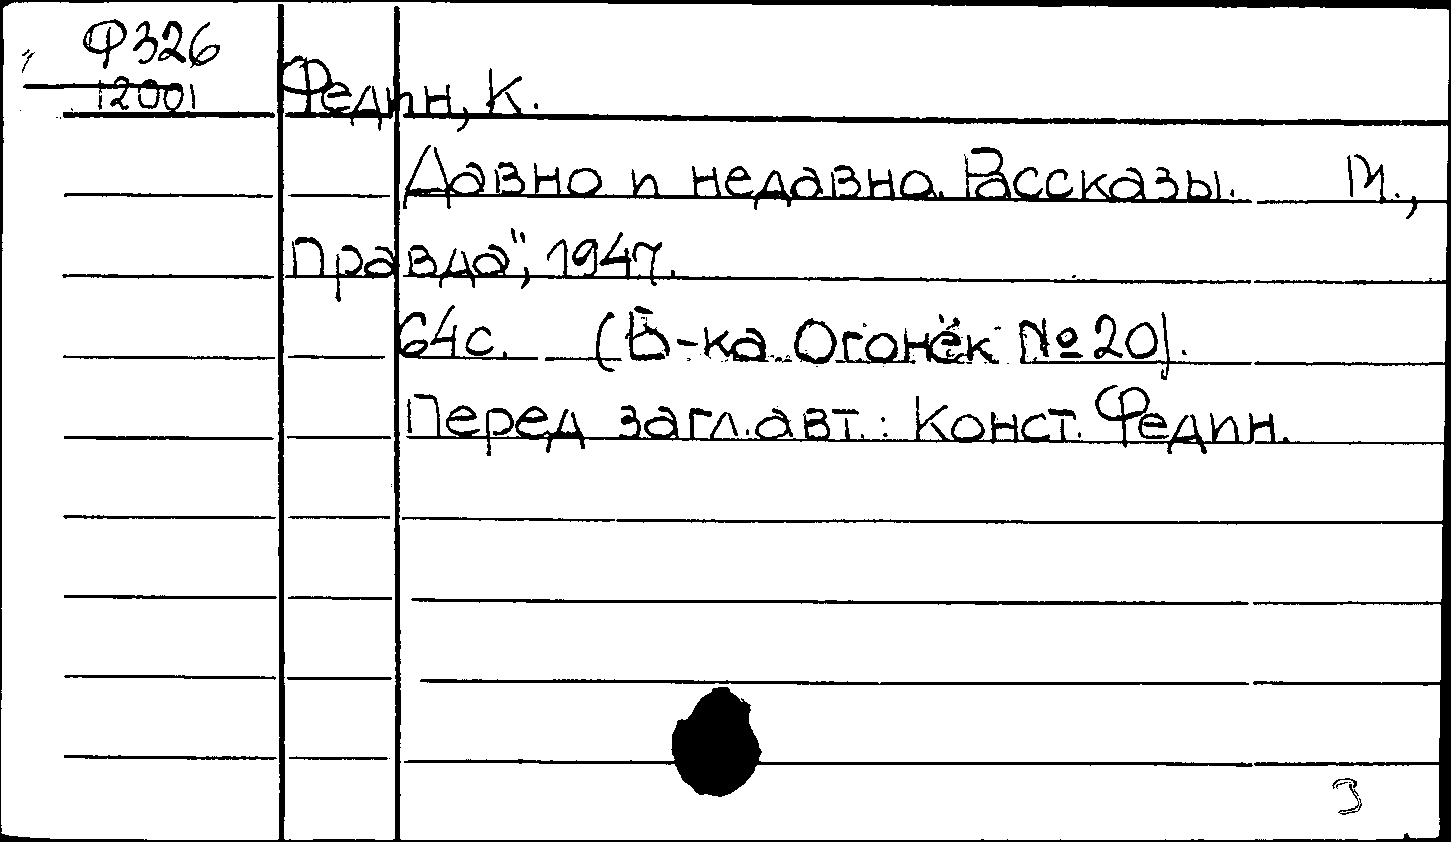 Ф326
12001
Федин, К.
Давно и недавно. Рассказы. М.,
Правда", 1947.
64с. (Б-ка Огонёк № 20).
Перед загл. авт.: Конст. Федин.